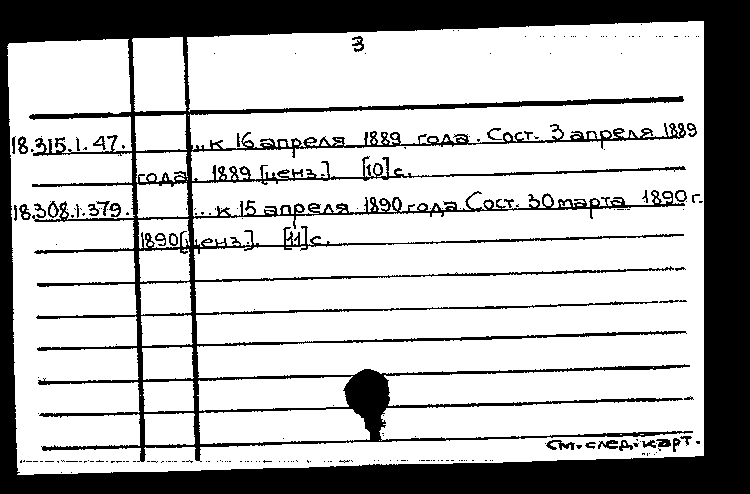 3
18.315.1.47. ...к 16 апреля 1889 года. Сост. 3 апреля 1889
года. 1889 [ценз.]. [10] с.
18.308.1.379. ...к 15 апреля 1890 года Сост. 30 марта 1890 г.
1890 [ценз.]. [11] с.
см. след. карт.